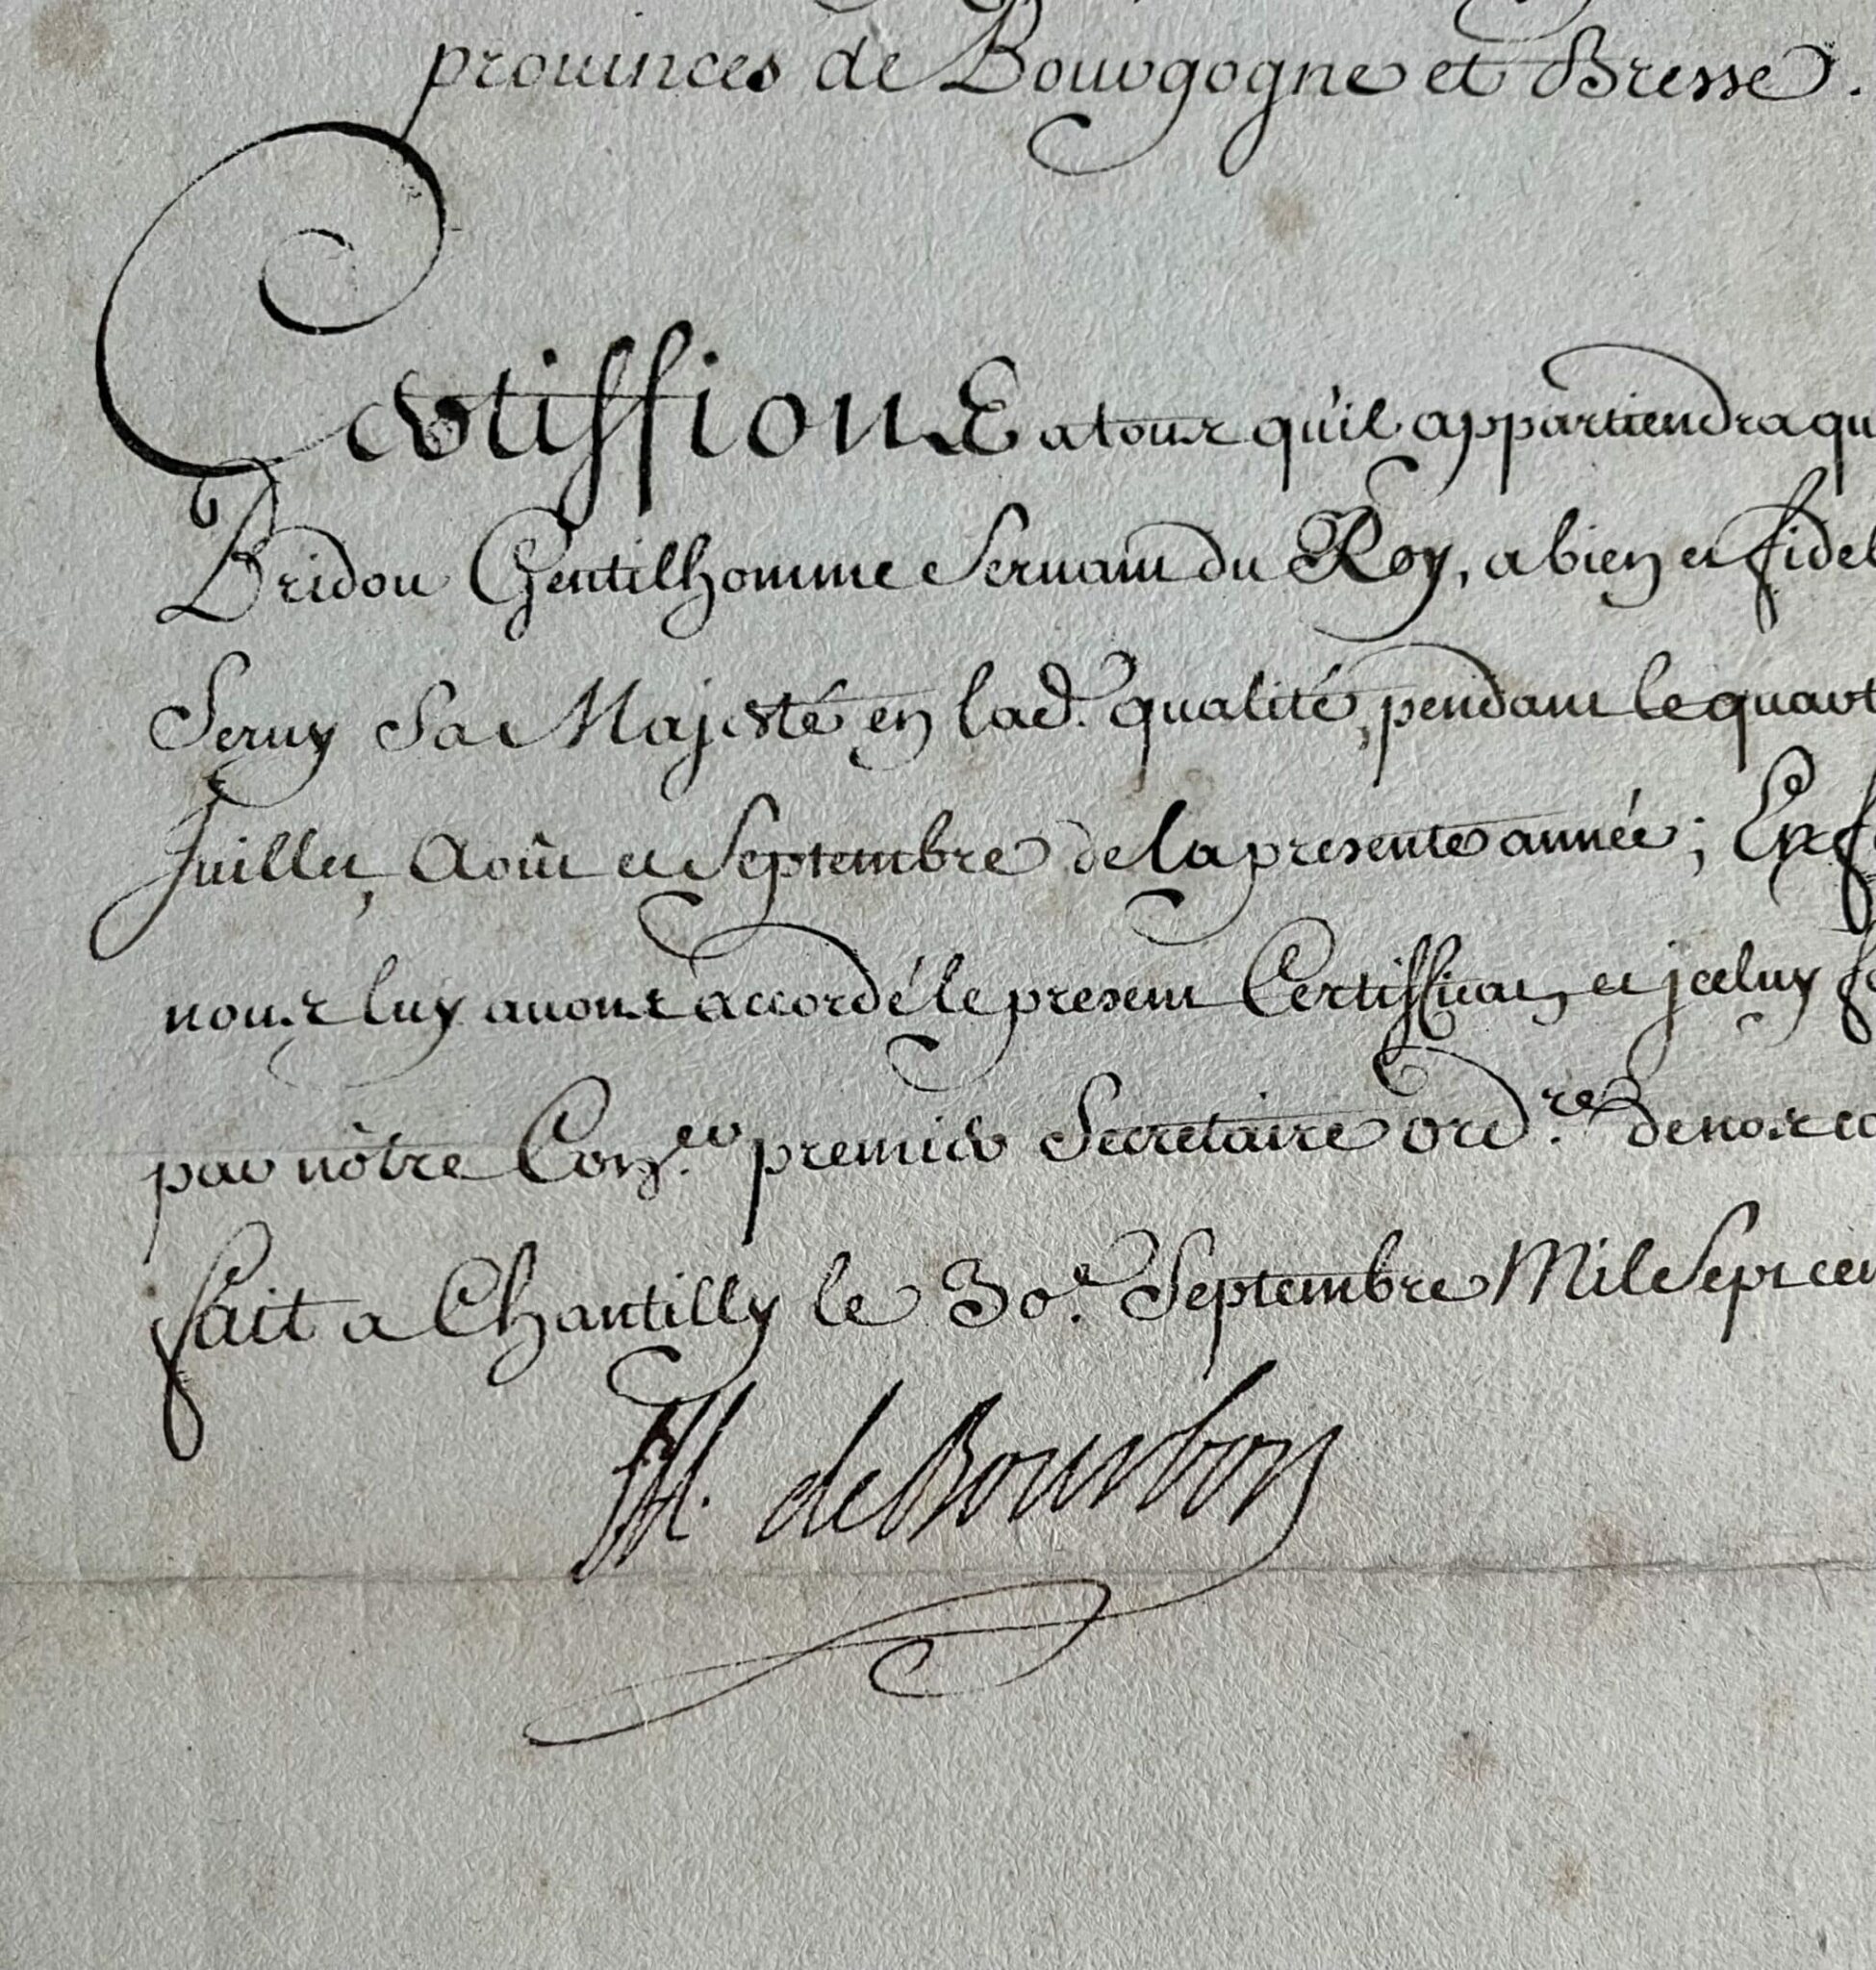 prouinces de Bourgogne et Bresse.
Certiffions a tous qu'il appartiendra qu
Bridou Gentilhomme Seruant du Roy, a bien et fidel
Seruy Sa Majesté en lad. qualité, pendant le quart
Juillet, Aoüt et Septembre de la presente année; En f
nous luy auons accordé le present Certifficat, et jceluy f
par nôtre Con.er premier Secretaire ord.re de nos co
fait a Chantilly le 30.e Septembre Mil Sept cen
H. de Bourbon